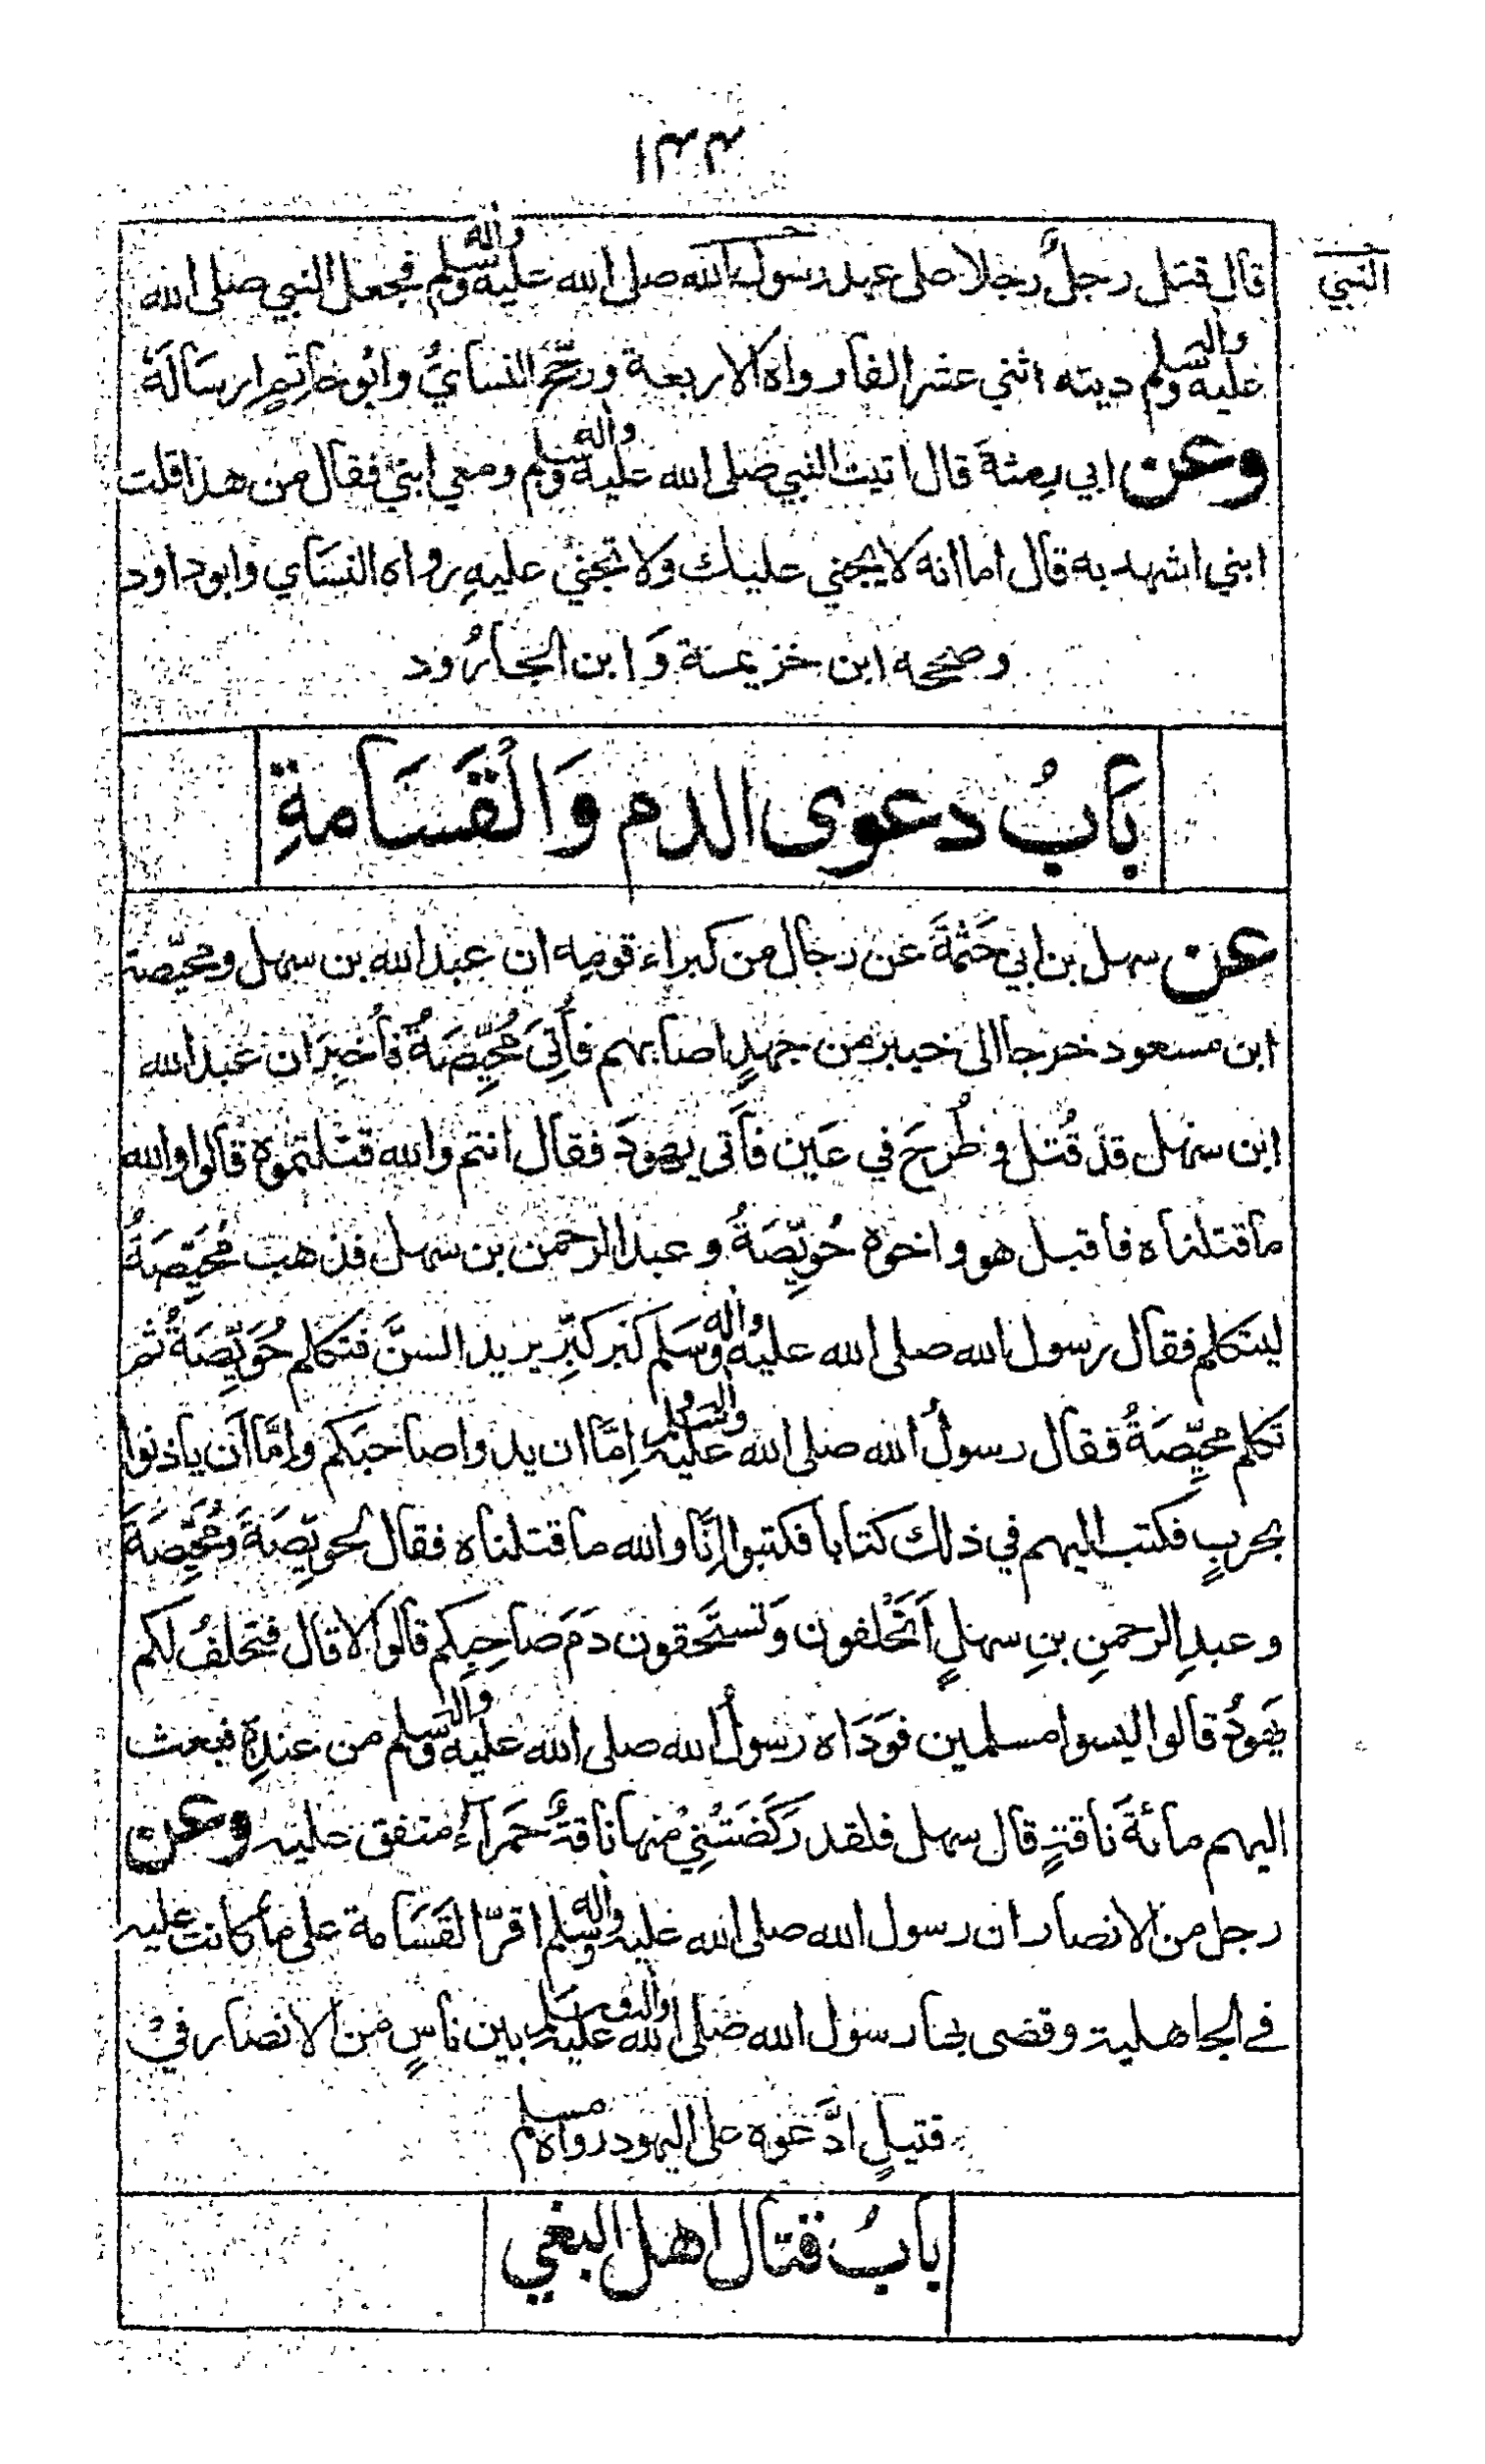 ١٣٣
النبي
قال قتل رجلٌ رجلا على عهد رسول الله صلى الله عليه واله وسلم فجعل النبي صلى الله
عليه واله وسلم ديته اثني عشر الفا رواه الاربعة ورجّح النسايُّ وابُو حاتِمٍ ارسَالَهُ
وعن ابي رمثةَ قال اتيت النبي صلى الله عليه واله وسلم ومعي ابني فقال من هذا قلت
ابني اشهد به قال اما انه لا يجني عليك ولا تجني عليهِ رواه النسَاي وابو داود
وصححه ابن خزيمة وَابن الجارُود
بَابُ دعوى الدم وَالْقَسَامةِ
عن سهل بن ابي حَثْمَةَ عَن رجال من كبراء قومِه ان عبد الله بن سهل ومحيّصة
ابن مسعود خرجا الى خيبر من جهدٍ اصابهم فأُتِيَ مُحَيِّصَةُ فأُخبِرَ ان عبد الله
ابن سهل قد قُتل وطُرِحَ في عَين فأتى يهودَ فقال انتم والله قتلتموه قالوا والله
ما قتلناه فاقبل هو واخوه حُوَيِّصَةُ وعبد الرحمن بن سهل فذهب مُحَيِّصَةُ
ليتكلم فقال رسول الله صلى الله عليه واله وسَلم كبر كبِّر يريد السنَّ فتكلم حُوَيِّصَةُ ثم
تكلم محيِّصَةُ فقال رسولُ الله صلى الله عليه واله وسلم اِمَّا ان يدوا صاحبَكم وامَّا اَن ياذنوا
بحربٍ فكتب اليهم في ذلك كتابا فكتبوا اِنَّا والله ما قتلناه فقال لحويِّصَةَ ومُحَيِّصَةَ
وعبدِ الرحمنِ بنِ سهلٍ اَتَحْلفون وَتستَحقون دَمَ صَاحِبِكم قالوا لا قال فتحلفُ لكم
يهودُ قالوا ليسوا مسلمين فوَدَاه رسولُ الله صلى الله عليه واله وسلم من عندِه فبعث
اليهم مائةَ ناقةٍ قال سهل فلقد رَكَضَتْنِيْ منها ناقةٌ حَمَراَءُ متفق عليه وعن
رجل من الانصار ان رسول الله صلى الله عليه واله وسلم اقرّ القَسَامة على ما كانت عليه
في الجاهلية وقضى بها رسول الله صلى الله عليه واله وسلم بين ناسٍ من الانصار فيْ
قتيلٍ ادَّعوه على اليهود رواه مسلم
بَابُ قتال اهل البغي